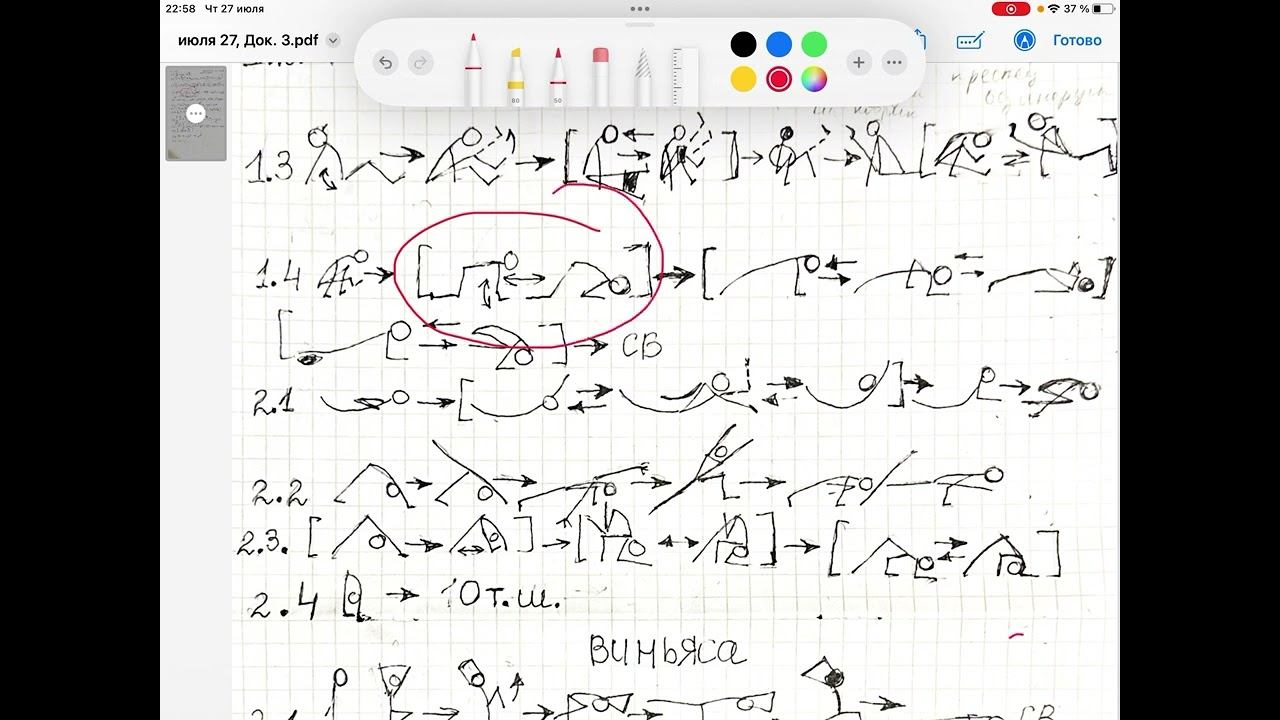 22:58 Чт 27 июля
37 %
июля 27, Док. 3.pdf
80
50
Готово
1.3
1.4
СВ
2.1
2.2
2.3.
2.4 10 т.ш.
Виньяса